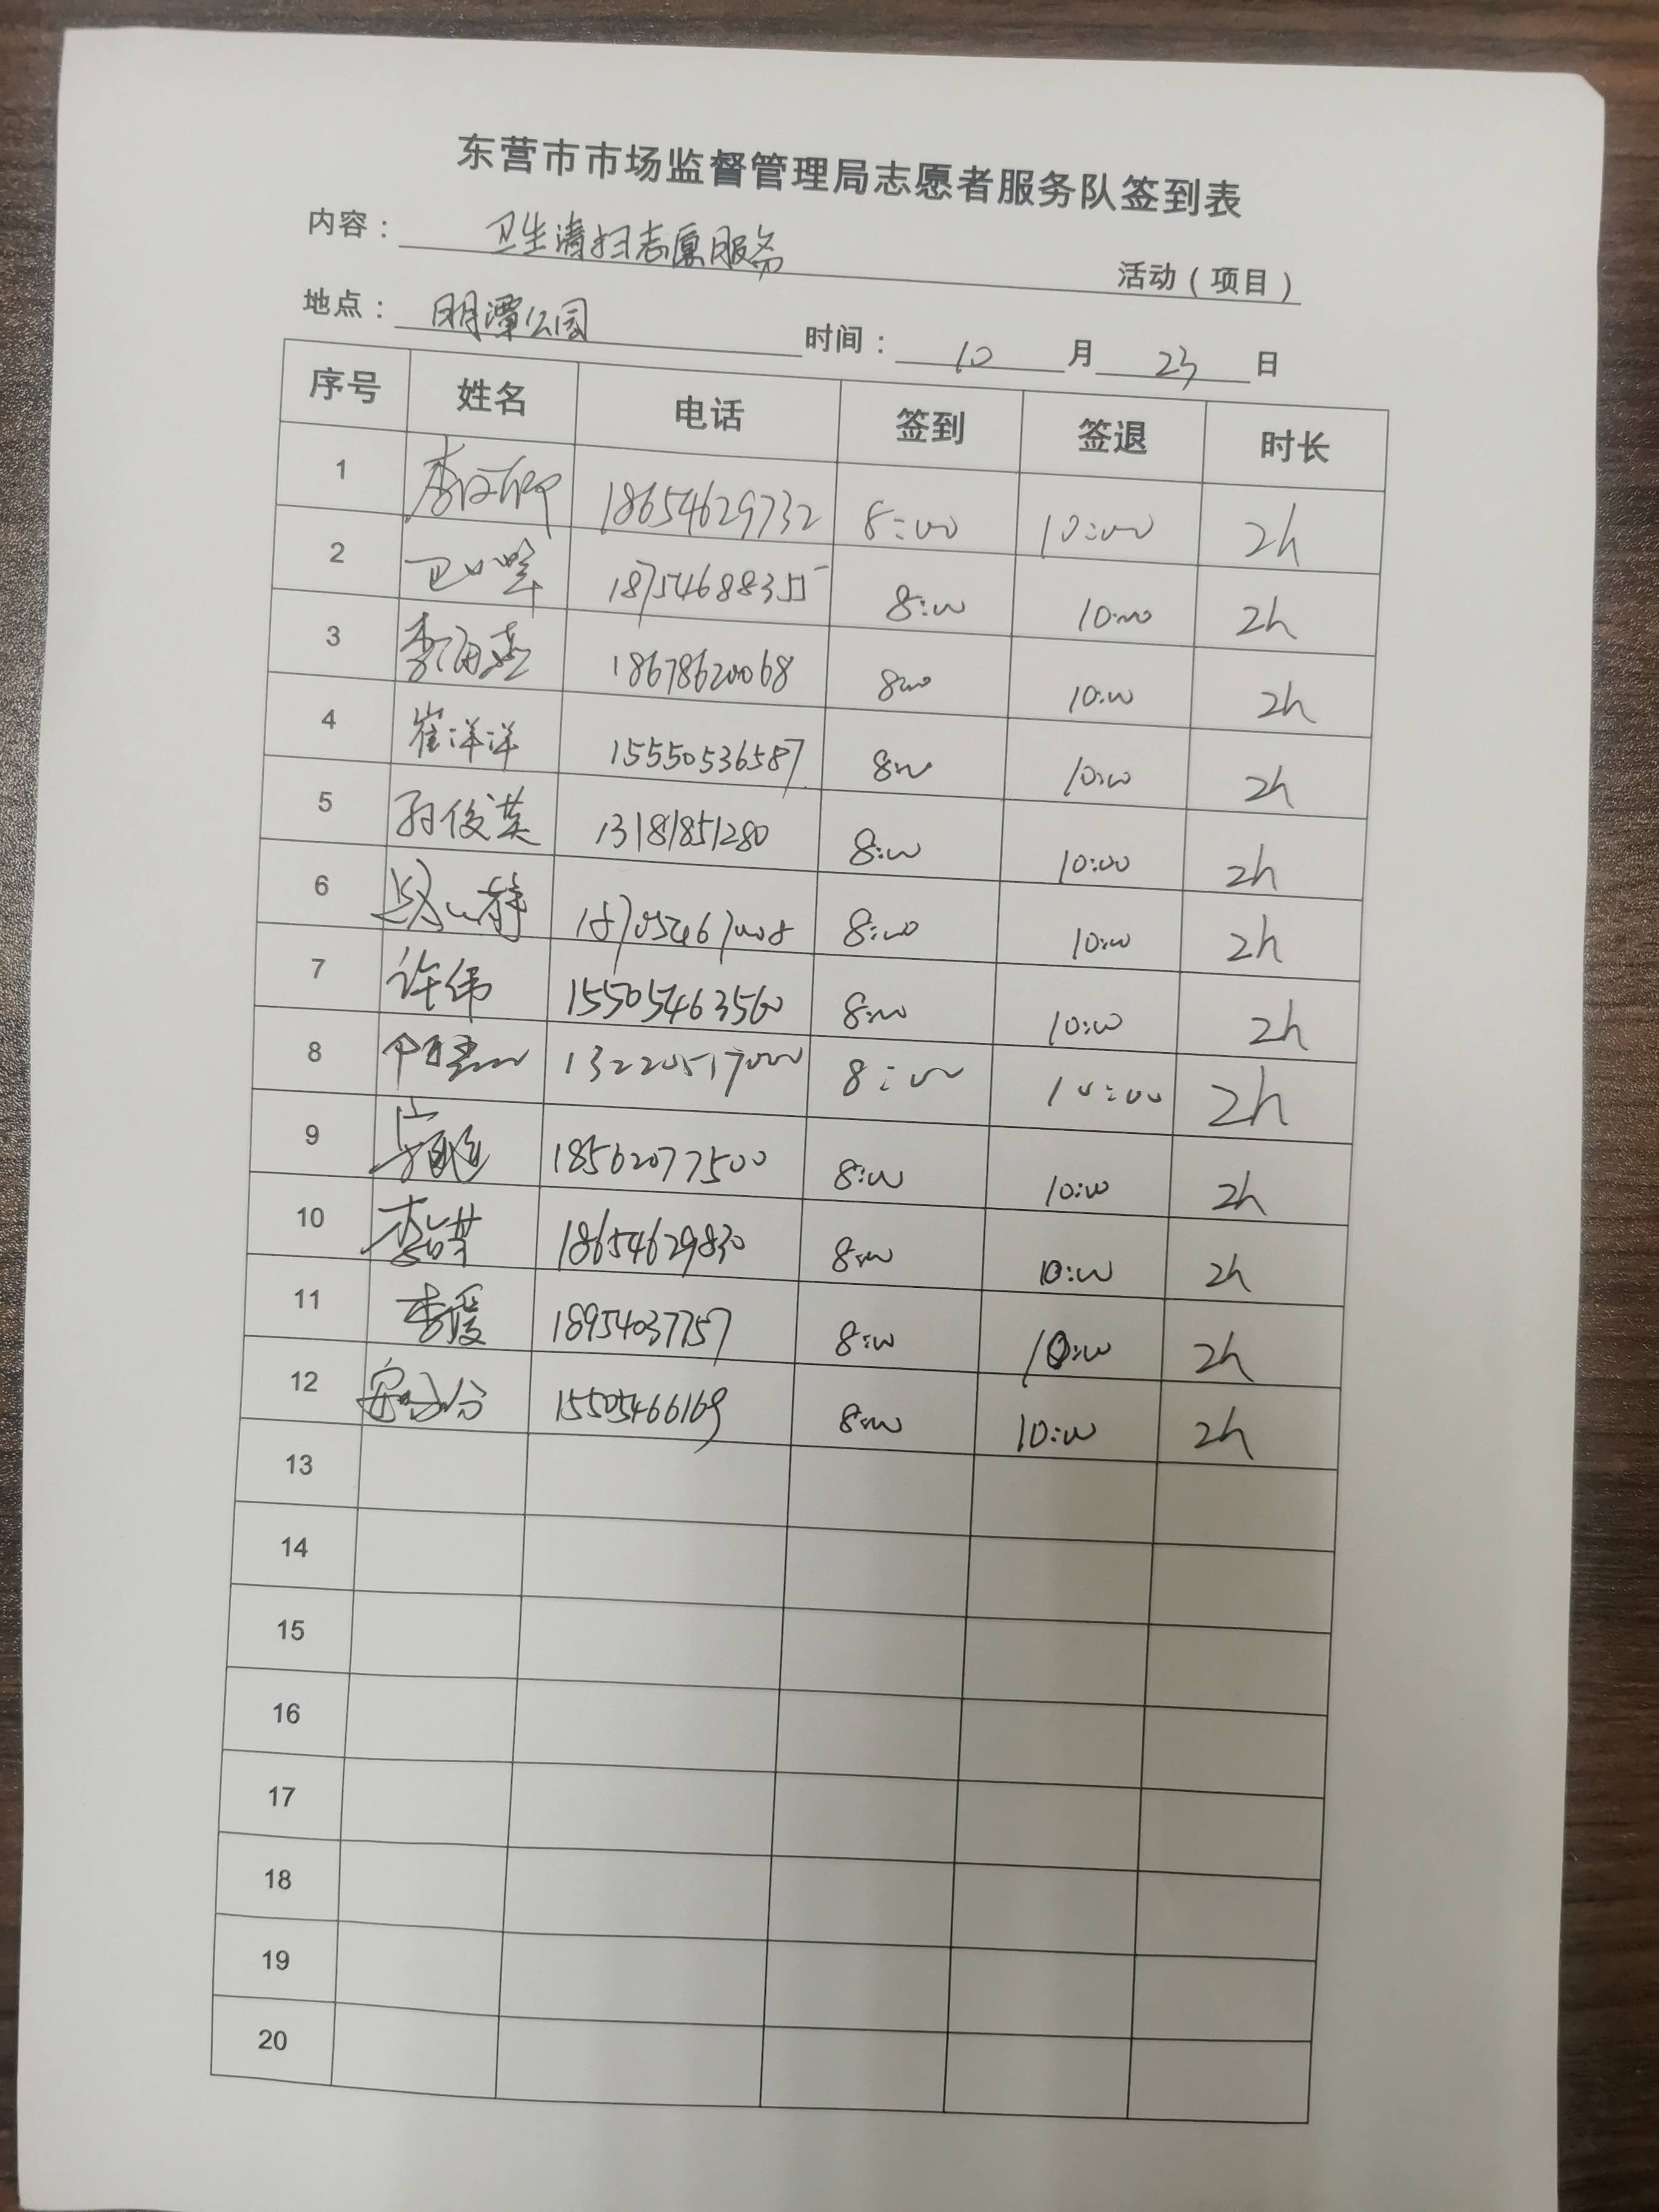 东营市市场监督管理局志愿者服务队签到表
内容： 卫生清扫志愿服务 活动（项目）
地点： 明潭公园 时间： 10 月 23 日
序号 姓名 电话 签到 签退 时长
1 18654629732 8:00 10:00 2h
2 18754688355 8:00 10:00 2h
3 18678620068 800 10:00 2h
4 崔洋洋 15550536587 8:00 10:00 2h
5 孙俊英 13181851280 8:00 10:00 2h
6 18705467008 8:00 10:00 2h
7 许伟 15505463560 8:00 10:00 2h
8 13220517000 8:00 10:00 2h
9 18562077500 8:00 10:00 2h
10 18654629830 8:00 10:00 2h
11 李媛 18954037757 8:00 10:00 2h
12 15505466169 8:00 10:00 2h
13
14
15
16
17
18
19
20